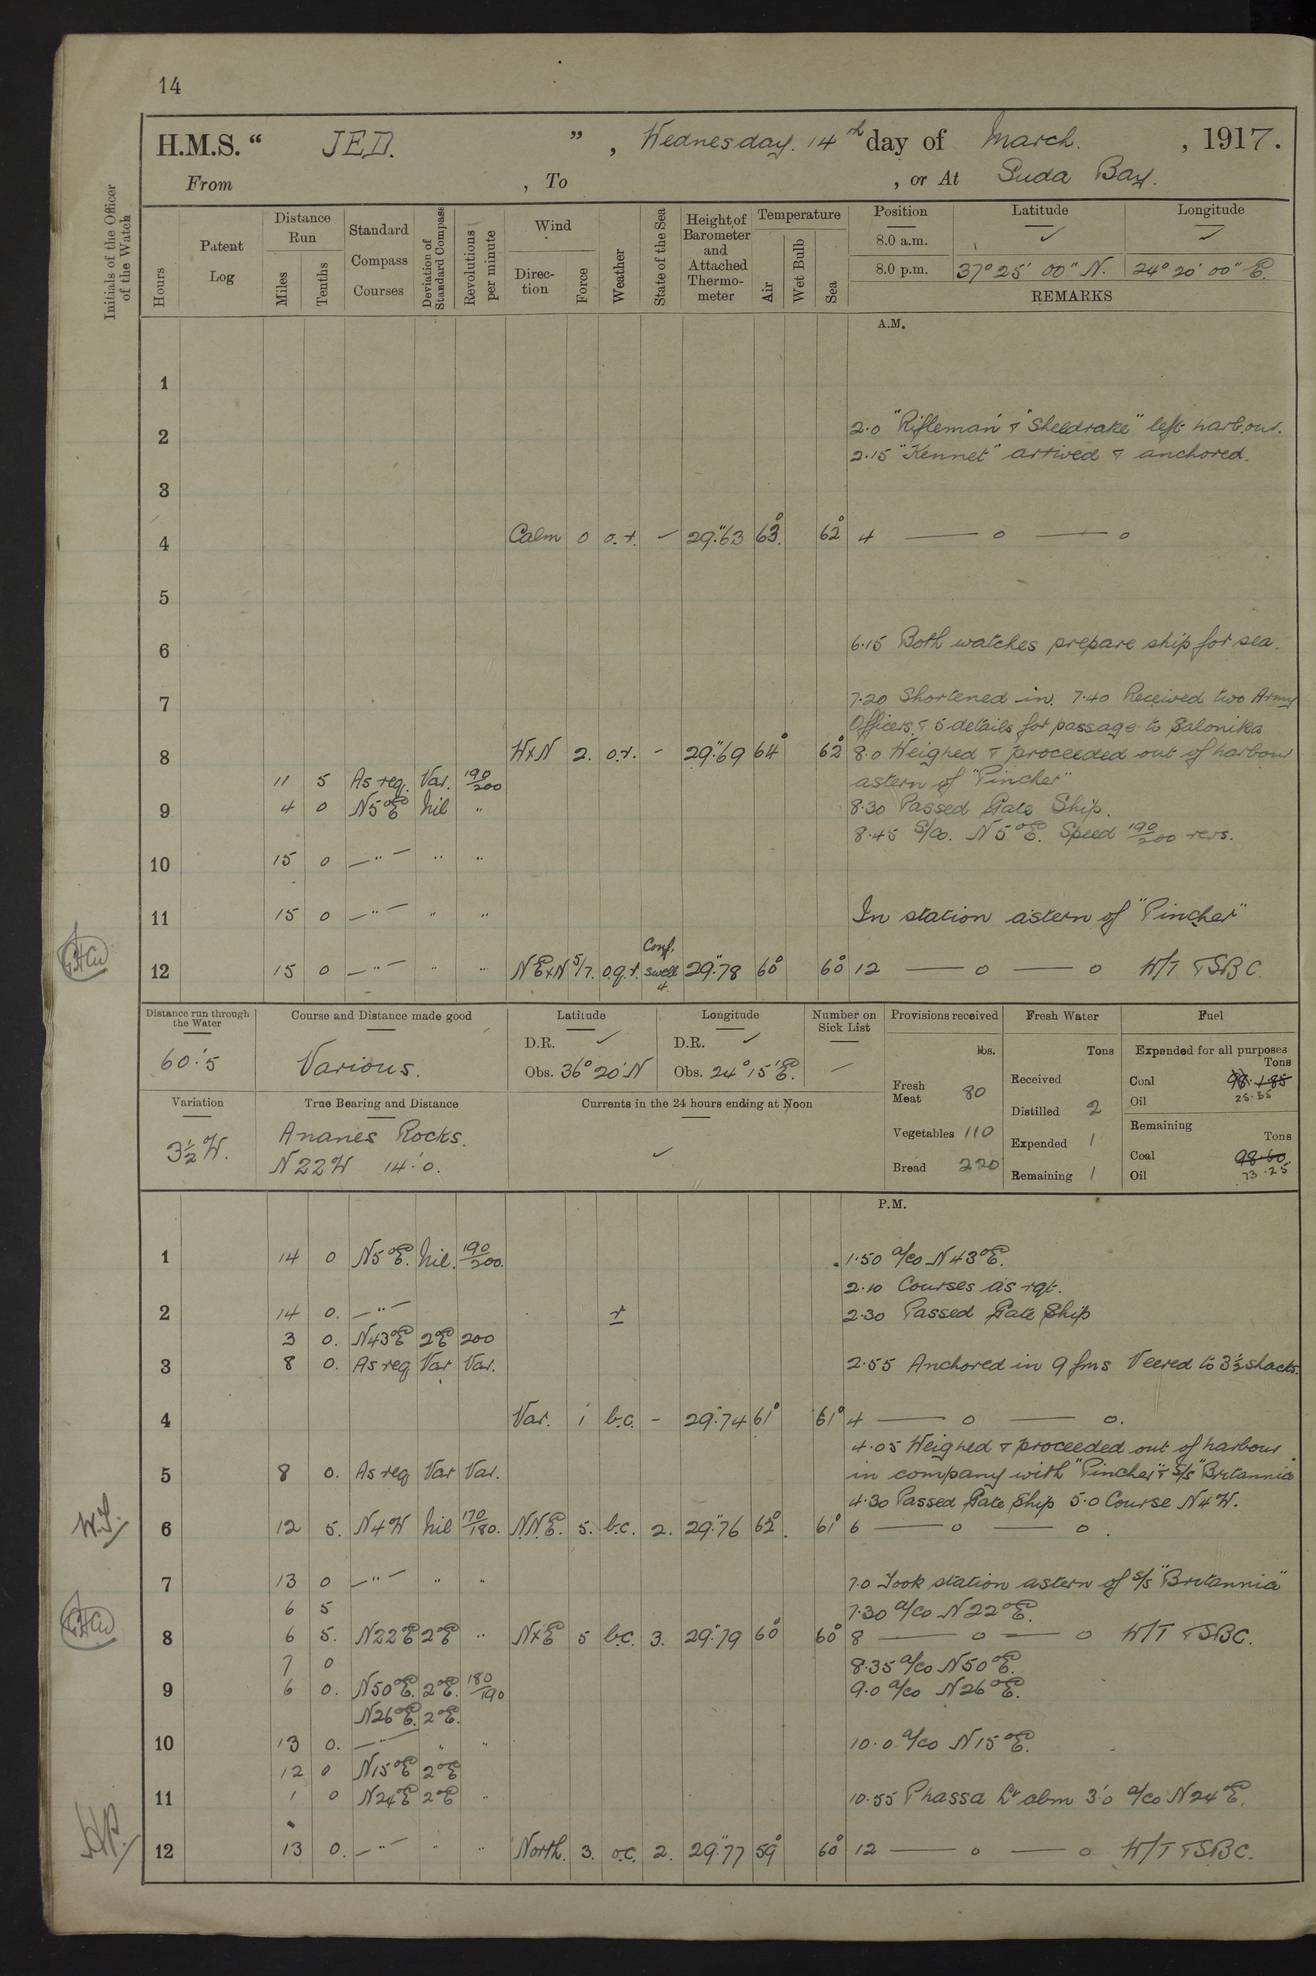 14
H.M.S. " JED. " , Wednesday. 14th day of March. , 1917.
From , To , or At Suda Bay.
Initials of the Officer of the Watch
Hours
Patent Log
Distance Run
Miles
Tenths
Standard Compass Courses
Deviation of Standard Compass
Revolutions per minute
Wind
Direction
Force
Weather
State of the Sea
Height of Barometer and Attached Thermometer
Temperature
Air
Wet Bulb
Sea
Position Latitude Longitude
8.0 a.m. ✓ ✓
8.0 p.m. 37° 25' 00" N. 24° 20' 00" E.
REMARKS
A.M.
1
2.0 "Rifleman" & "Sheldrake" left harbour.
2
2.15 "Kennet" arrived & anchored.
3
4 Calm 0 o.r. - 29."63 63° 62° 4 — o — o
5
6 6.15 Both watches prepare ship for sea.
7 7.20 Shortened in. 7.40 Received two Army
Officers & 5 details for passage to Salonika
8 WxN 2. o.r. - 29."69 64° 62° 8.0 Weighed & proceeded out of harbour
11 5 As req. Var. 190/200 astern of "Pincher"
9 4 0 N5°E Nil " 8.30 Passed Gate Ship.
8.45 S/Co. N5°E. Speed 190/200 revs.
10 15 0 —"— " "
11 15 0 —"— " " In station astern of "Pincher"
12 15 0 —"— " " NExN 5/7. o.q.r. Conf. swell 4. 29."78 60° 60° 12 — o — o W/T & SBC.
Distance run through the Water
60.'5
Course and Distance made good
Various.
Latitude
D.R. ✓
Obs. 36° 20' N
Longitude
D.R. ✓
Obs. 24° 15' E.
Number on Sick List
—
Provisions received
lbs.
Fresh Meat 80
Vegetables 110
Bread 220
Fresh Water
Tons
Received
Distilled 2
Expended 1
Remaining 1
Fuel
Expended for all purposes
Tons
Coal
Oil 25.35
Remaining
Tons
Coal 98.60
Oil 73.25
Variation
3½°W.
True Bearing and Distance
Ananes Rocks.
N22W 14.'0.
Currents in the 24 hours ending at Noon
✓
P.M.
1 14 0 N5°E. Nil. 190/200. 1.50 a/co N43°E.
2.10 Courses as rqt.
2 14 0. —"— r 2.30 Passed Gate Ship
3 0. N43°E 2°E 200
3 8 0. As req Var Var. 2.55 Anchored in 9 fms Veered to 3½ shacks.
4 Var. 1 b.c. - 29."74 61° 61° 4 — o — o.
4.05 Weighed & proceeded out of harbour
5 8 0. As req Var Var. in company with "Pincher" & S/S "Britannia"
4.30 Passed Gate Ship 5.0 Course N4W.
6 12 5. N4W Nil 170/180. NNE. 5. b.c. 2. 29."76 62°. 61° 6 — o — o.
7 13 0 —"— " " 7.0 Took station astern of S/S "Britannia"
6 5 7.30 a/co N22°E.
8 6 5. N22°E 2°E " NxE 5 b.c. 3. 29."79 60° 60° 8 — o — o W/T & SBC.
7 0 8.35 a/co N50°E.
9 6 0. N50°E. 2°E. 180/190 9.0 a/co N26°E.
N26°E. 2°E.
10 13 0. —"— " " 10.0 a/co N15°E.
12 0 N15°E 2°E
11 1 0 N24°E 2°E " 10.55 Phassa Lt abm 3.'0 a/co N24°E.
12 13 0. —"— " " North. 3. o.c. 2. 29."77 59° 60° 12 — o — o W/T & SBC.